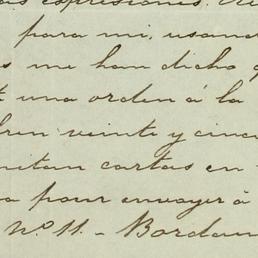 expresiones.
para mi, usand
s me han dicho q
una orden á la
bren veinte y cinc
mitan cartas en
a pour envoyer à
Nº 11. - Bordeau